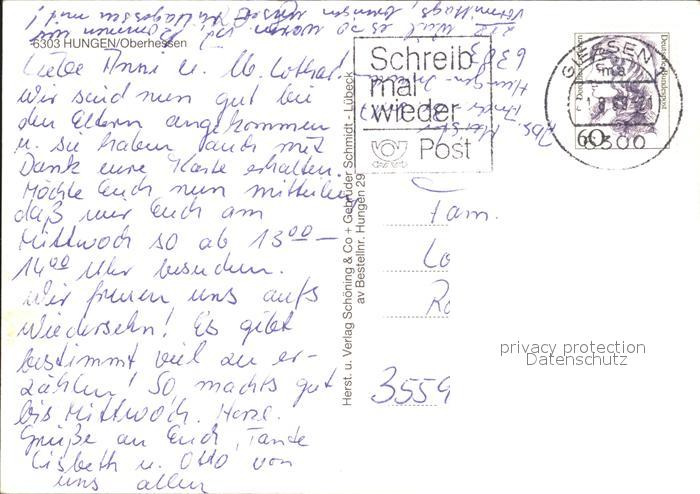 6303 HUNGEN/Oberhessen
Liebe Anni u. Lothar!
Wir sind nun gut bei
den Eltern angekommen
u. sie haben auch mit
Dank eure Karte erhalten.
Möchte Euch nun mitteilen
daß wir Euch am
Mittwoch so ab 13⁰⁰ –
14⁰⁰ Uhr besuchen.
Wir freuen uns aufs
Wiedersehn! Es gibt
bestimmt viel zu er-
zählen! So, machts gut
bis Mittwoch. Herzl.
Grüße an Euch, Tante
Lisbeth u. Otto von
uns allen
Herst. u. Verlag Schöning & Co + Gebrüder Schmidt - Lübeck
av Bestellnr. Hungen 29
Schreib
mal
wieder
Post
GIESSEN 1
6300
Deutsche Bundespost
60
Fam.
Lo
Ro
3559
privacy protection
Datenschutz